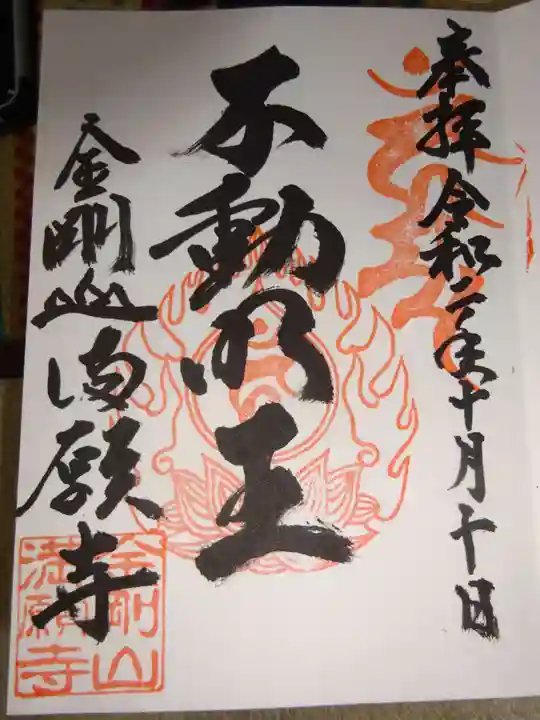 奉拝 令和二年十月十日
不動明王
金剛山 満願寺
金剛山
満願寺